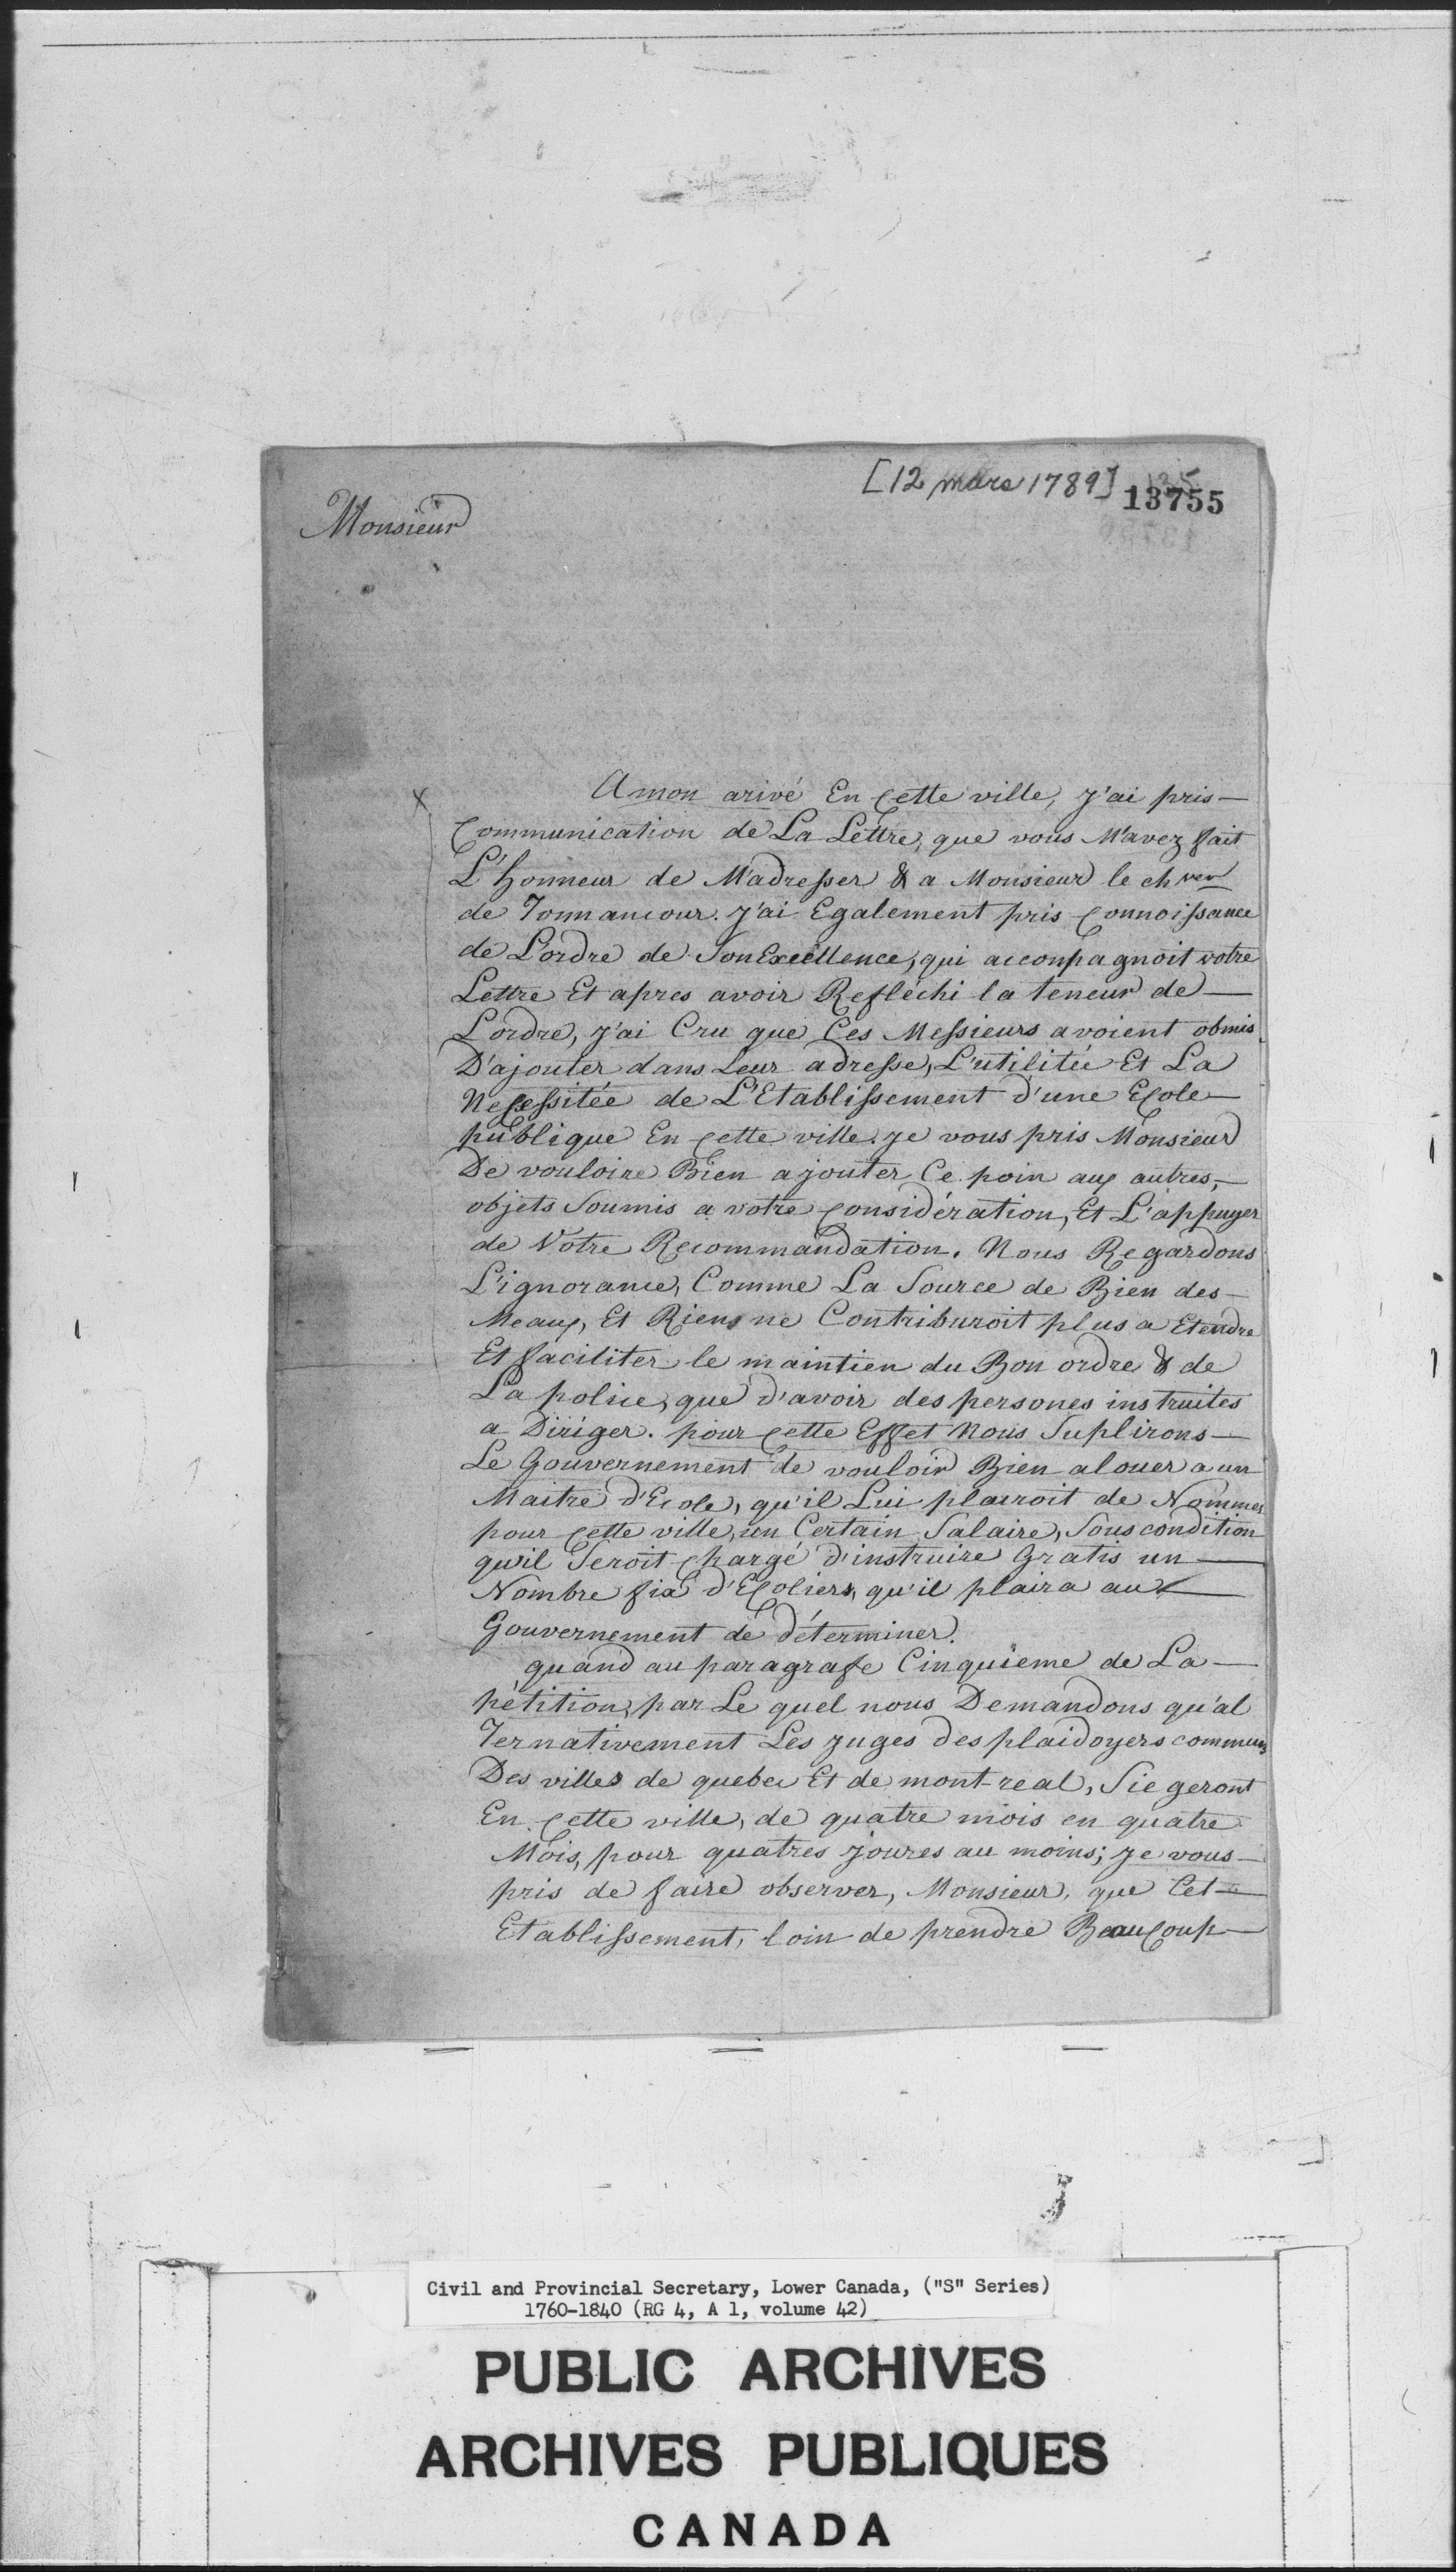 [12 mars 1789]
13755
Monsieur
A mon arivé En Cette ville, J'ai pris —
Communication de La Lettre, que vous M'avez fait
L'Honneur de M'adresser & a Monsieur le chver
de Tonnancour. J'ai Egalement pris Connoissance
de L'ordre de Son Excellence, qui acconpagnoit votre
Lettre Et apres avoir Refléchi la teneur de —
L'ordre, J'ai Cru que Ces Messieurs avoient obmis
D'ajouter dans Leur adresse, L'utilitée Et La
Necessitée de L'Etablissement d'une Ecole —
publique En Cette ville. Je vous pris Monsieur
De vouloire Bien ajouter Ce poin aux autres, —
objets Soumis a votre Considération, Et L'appuyer
de Votre Recommandation. Nous Regardons
L'ignorance, Comme La Source de Bien des —
Meaux, Et Riens ne Contriburoit plus a Etendre
Et faciliter le maintien du Bon ordre & de
La police, que d'avoir des persones instruites
a Diriger. pour Cette Effet Nous Suplirons —
Le Gouvernement de vouloir Bien alouer a un
Maitre d'Ecole, qu'il Lui plairoit de Nommer
pour Cette ville, un Certain Salaire, Sous condition
qu'il Seroit Chargé d'instruire Gratis un —
Nombre fixé d'Ecoliers, qu'il plaira au —
Gouvernement de déterminer.
quand au paragrafe Cinquieme de La —
pétition, par Le quel nous Demandons qu'al
Ternativement Les Juges des plaidoyers communs
Des villes de quebec Et de mont-real, Siegeront
En Cette ville, de quatre mois en quatre
Mois, pour quatres Joures au moins; Je vous —
pris de faire observer, Monsieur, que Cet —
Etablissement, loin de prendre Beaucoup —
Civil and Provincial Secretary, Lower Canada, ("S" Series)
1760-1840 (RG 4, A 1, volume 42)
PUBLIC ARCHIVES
ARCHIVES PUBLIQUES
CANADA